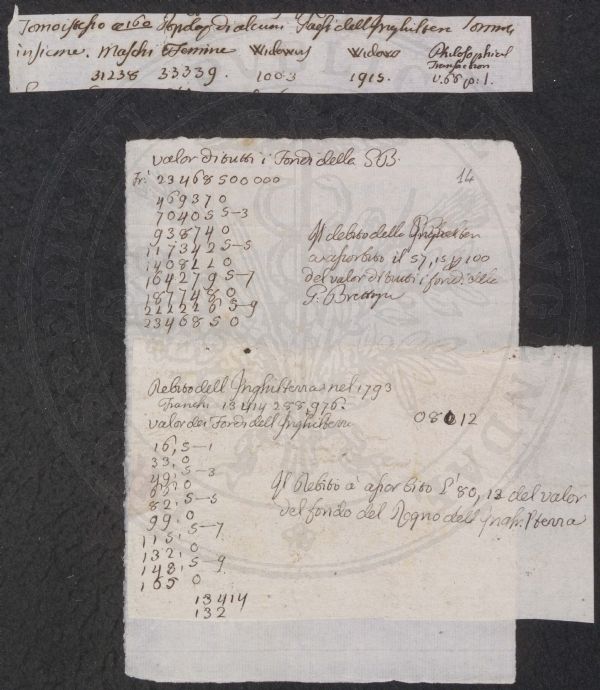 Tomo istesso a 160 Popolaz. di alcuni Paesi dell Inghilterra Somma
insieme. Maschi e Femine Widowers Widows Philosophical
Transaction
31238 33339. 1003 1915. v. 66 p. 1.
Valor di tutti i Fondi della GB.
14
Fr. 23468500000
469370
704055-3
938740
1173425-5
1408110
1642795-7
1877480
2112165-9
2346850
Il debito della Inghilterra
a assorbito il 57,15 p 100
del valor di tutti i fondi della
G. Brettagna
Debito dell Inghilterra nel 1793
Franchi 13414 288,976.
Valor dei Fondi dell Inghilterra
08012
16,5-1
33,0
49,5-3
66,0
82,5-5
99,0
115,5-7
132,0
148,5-9
165 0
13414
132
Il Debito à assorbito L' 80, 12 del valor
del fondo del Regno dell Inghilterra